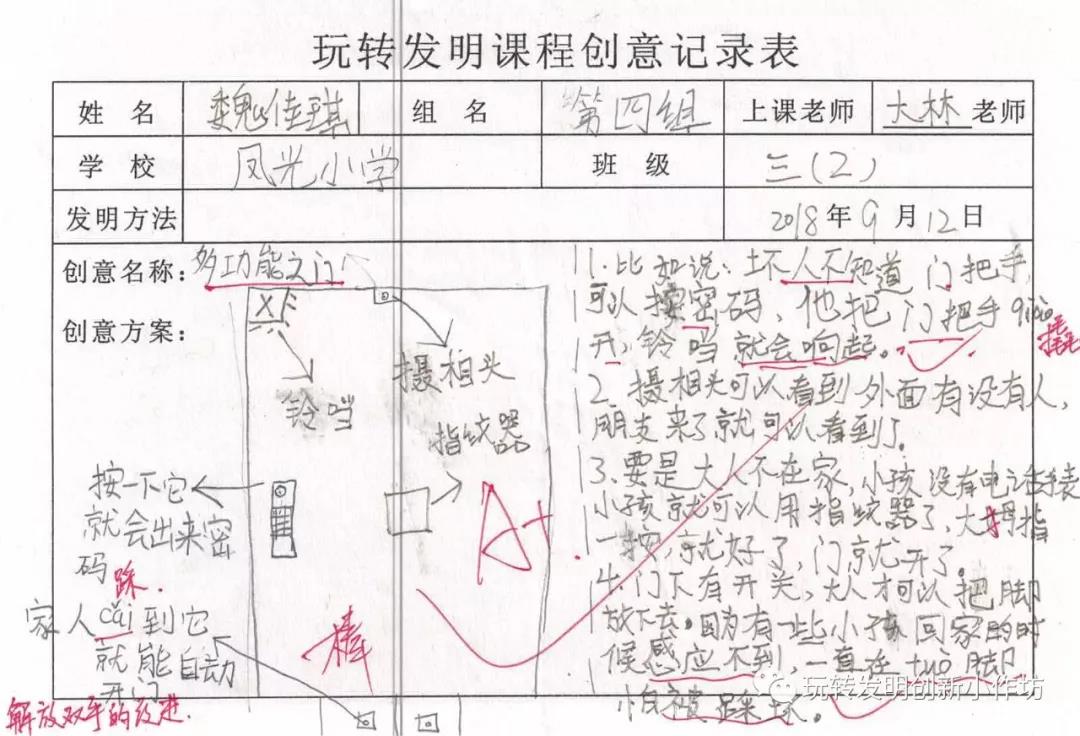 玩转发明课程创意记录表
姓名 魏佳琪 组名 第四组 上课老师 大林老师
学校 凤光小学 班级 三(2)
发明方法 2018年9月12日
创意名称：多功能之门
创意方案：
摄相头
铃当
指纹器
按一下它
就会出来密
码
踩
家人cǎi到它
就能自动
开门
棒
A+
解放双手的改进.
1.比如说：坏人不知道门把手，
可以按密码，他把门把手qiào
撬
开，铃当就会响起。
2.摄相头可以看到外面有没有人，
朋支来了就可以看到了。
3.要是大人不在家，小孩没有电话手表
小孩就可以用指纹器了，大拇指
一按，就好了，门就开了。
4.门下有开关，大人才可以把脚
放下去。因为有一些小孩回家的时
候感应不到，一直在tuò脚
怕被踩坏。
玩转发明创新小作坊